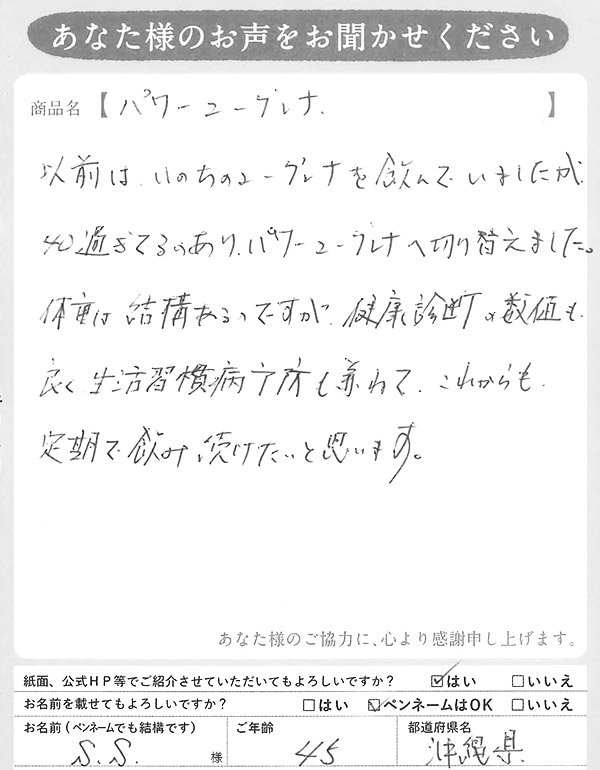 あなた様のお声をお聞かせください
商品名【パワーユーグレナ.】
以前は、いのちのユーグレナを飲んでいましたが、
40過ぎてるのあり、パワーユーグレナへ切り替えました。
体重は結構あるのですが、健康診断の数値も
良く、生活習慣病予防も兼ねて、これからも
定期で飲み続けたいと思います。
あなた様のご協力に、心より感謝申し上げます。
紙面、公式HP等でご紹介させていただいてもよろしいですか？ ☑はい □いいえ
お名前を載せてもよろしいですか？ □はい ☑ペンネームはOK □いいえ
お名前（ペンネームでも結構です） ご年齢 都道府県名
S.S. 様 45 沖縄県